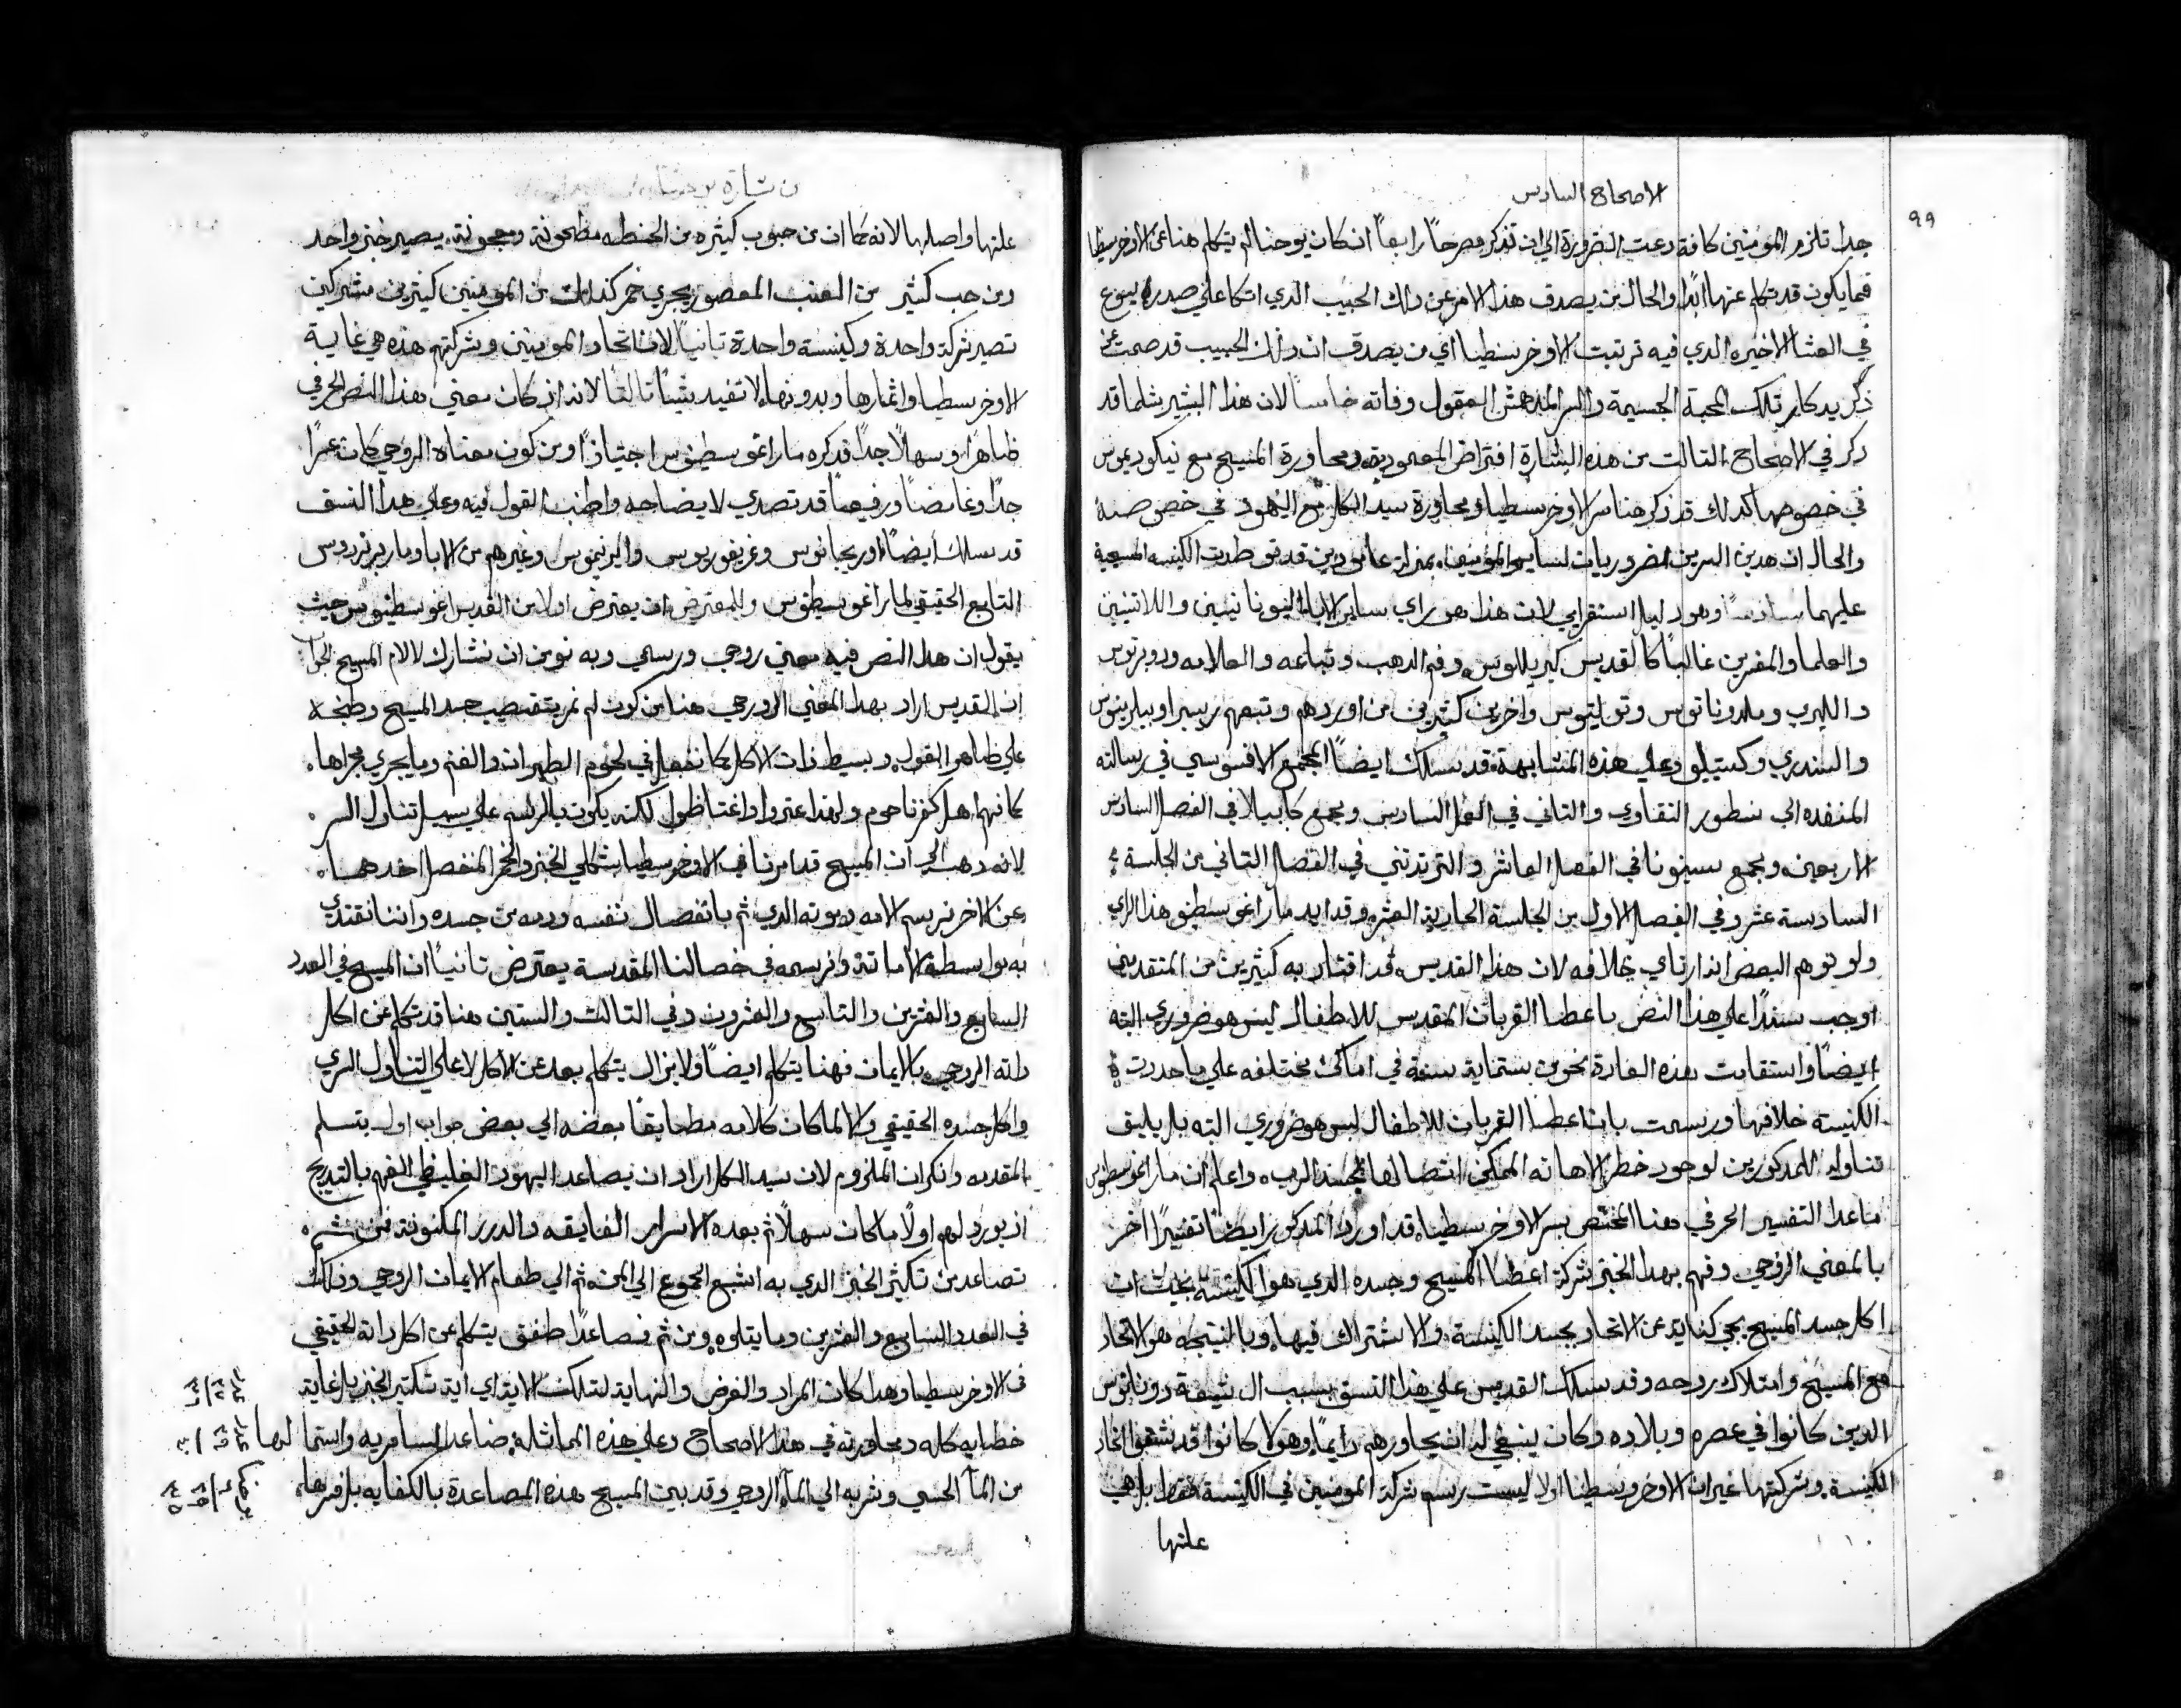 الاصحاح السادس
٩٩
جدا تلزم المومنين كافة دعت الضرورة الي ان تذكر مصرحاً رابعاً ان كان يوحنا لم يتكلم هنا عن الاوخرسطيا
فما يكون قد تكلم عنها ابدًا والحال من يصدق هذا الامر عن ذلك الحبيب الذي اتكا علي صدر يسوع
في العشا الاخير الذي فيه ترتبت الاوخرسطيا اي من يصدق ان ذلك الحبيب قد صمت عن
ذكر تلك المحبة الجسيمة والسر المدهش العقول وفاته خامساً لان هذا البشير مثلما قد
ذكر في الاصحاح التالت من هذه البشارة افتراض المعمودية ومحاورة المسيح مع نيكوديموس
في خصوصها كذلك قد ذكر هنا سر الاوخرسطيا ومحاورة سيد الكل مع اليهود في خصوصه
والحال ان هدين السرين الضروريات لساير المومنين بمنزلة عامودين قد توطدت الكنيسه المسيحية
عليهما سادساً وهو دليل استقرايي لان هذا هو راي ساير الابا اليونانيين واللاتنيين
والعلما والمفسرين غالباً كالقديس كيريللوس وفم الدهب وتباعه والعلامه وروبرتوس
والليري وملدوناتوس وتوليتوس واخرين كثيرين من اوردهم وتبعهم بريسرا وبيلرينوس
والسندري وكستيليو وعلي هذه المتشابهة قد سلك ايضاً المجمع الافسوسي في رسالته
المنفده الي نسطور النقاوي والتاني في العمل السادس ومجمع كابيلا في الفصل السادس
الاربعين ومجمع سينونا في الفصل العاشر والتريدنتي في الفصل التاني من الجلسة
السادسة عشر وفي الفصل الاول من الجلسة الحادية العشر وقد ايد مار اغوسطينوس هذا الراي
ولو توهم البعض انه ارتاي بخلافه لان هذا القديس قد اقتاد به كثيرين من المتقدمين
اوجب سندًا علي هذا النص باعطا القربان المقدس للاطفال ليس هو ضروري البته
ايضاً واستقامت هذه العادة نحو من ستماية سنة في اماكن مختلفه علي ما حددت
الكنيسة خلافها ورسمت بان اعطا القربان للاطفال ليس هو ضروري البته بل يليق
تناوله للمدكورين لوجود خطر الاهانه الممكن اتصالها لجسد الرب واعلم ان مار اغوسطينوس
ماعدا التفسير الحرفي هنا المختص بسر الاوخرسطيا قد اورد المدكور ايضاً تفسيراً اخر
بالمعني الروحي وفهم بهدا الخبز شركة اعضا المسيح وجسده الدي هو الكنيسة بحيث ان
اكل جسد المسيح يجي كناية عن الاتحاد بجسد الكنيسة والاشتراك فيها وبالنتيجه هو الاتحاد
مع المسيح وامتلاك روحه وقد سلك القديس علي هذا النسق بسبب ال شيعة دوناتوس
الدين كانوا في عصره وبلاده وكان ينبغي له ان يحاورهم دايماً وهولا كانوا قد شقوا اتحاد
الكنيسة وشركتها غير ان الاوخرسطيا اولا ليست رسم شركة المومنين في الكنيسة فقط بل هي
علتها
من بشارة يوحنا
علتها واصلها لانه كما ان من حبوب كثيره من الحنطه مطحونة ومعجونة يصير خبز واحد
ومن حب كثير من العنب المعصور يجري خمر كذلك من المومنين كثيرين مشتركين
تصير شركة واحدة وكنيسة واحدة تانياً لان اتحاد المومنين وشركتهم هذه هي غاية
الاوخرسطيا واثمارها وبدونها لا تفيد شيئاً تالتاً لانه ان كان معني هدا النص الحرفي
ظاهرًا وسهلاً جدًا قد ذكره مار اغوسطينوس اجتيازًا ومن كون معناه الروحي كان عسرًا
جدًا وغامضاً ورفيعاً قد تصدي لايضاحه واطنب القول فيه وعلي هدا النسق
قد سلك ايضاً اوريجانوس وغريغوريوس وايرنيموس وغيرهم من الابا ومار برنردوس
التابع الحقيقي لمار اغوسطينوس وللمعترض ان يعترض اولا من القديس اغوسطينوس حيث
يقول ان هدا النص فيه معني روحي ورسمي وبه نومن ان نشارك لالام المسيح الجواب
ان القديس اراد بهدا المعني الروحي هنا من كون لم نمر بتقضيب جسد المسيح وطبخه
علي ظاهر القول وبسيط ذات الاكل كما نفعل في لحوم الطيران والغنم وما يجري مجراها
كما فهم اهل كفرناحوم ولهدا عثروا واغتاظوا لكنه يكون بالرسم علي سبيل تناول السر
لانه دهب الي ان المسيح قد امرنا في الاوخرسطيا بشكلي الخبز والخمر المنفصل احدهما
عن الاخر نرسم الامه وموته الدي تم بانفصال نفسه ودمه من جسده واننا نقتدي
به بواسطة الاماتة ونرسمه في خصالنا المقدسة يعترض تانياً ان المسيح في العدد
السابع والعشرين والتاسع والعشرون وفي التالت والستين هنا قد تكلم عن اكل
داته الروحي بالايمان فهنا يتكلم ايضاً ولا يزال يتكلم بعد عن الاكل لا علي التناول السري
واكل جسده الحقيقي والا لما كان كلامه مطابقاً بعضه الي بعض جواب اول بتسلم
المقدمه ونكران الملزوم لان سيد الكل اراد ان يصاعد اليهود الغليظي الفهم بالتدريج
اذ يورد لهم اولاً ما كان سهلاً ثم بعده الاسرار الفايقه والدرر المكنونة فمن ثم
تصاعد من تكثير الخبز الدي به اشبع الجموع الي المن ثم الي طعام الايمان الروحي وذلك
في العدد السابع والعشرين وما يتلوه ومن ثم فصاعدًا طفق يتكلم عن اكل داته الحقيقي
في الاوخرسطيا وهدا كان المراد والغرض والنهاية لتلك الاية اي اية تكثير الخبز بل غاية
خطابه كله ومحاورته في هدا الاصحاح وعلي هذه المماثلة صاعد السامريه واستمالها
من الما الحسي وشربه الي الما الروحي وقد بين المسيح هذه المصاعدة بالكفايه بل فسرها